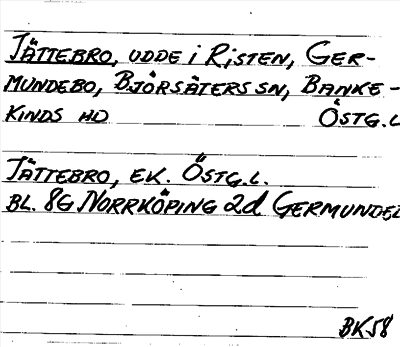 JÄTTEBRO, UDDE i RISTEN, GER-
MUNDEBO, BJÖRSÄTERS SN, BANKE-
KINDS HD ÖSTG.L
JÄTTEBRO, EK. ÖSTG.L.
BL. 8G NORRKÖPING 2d GERMUNDEB
BK58